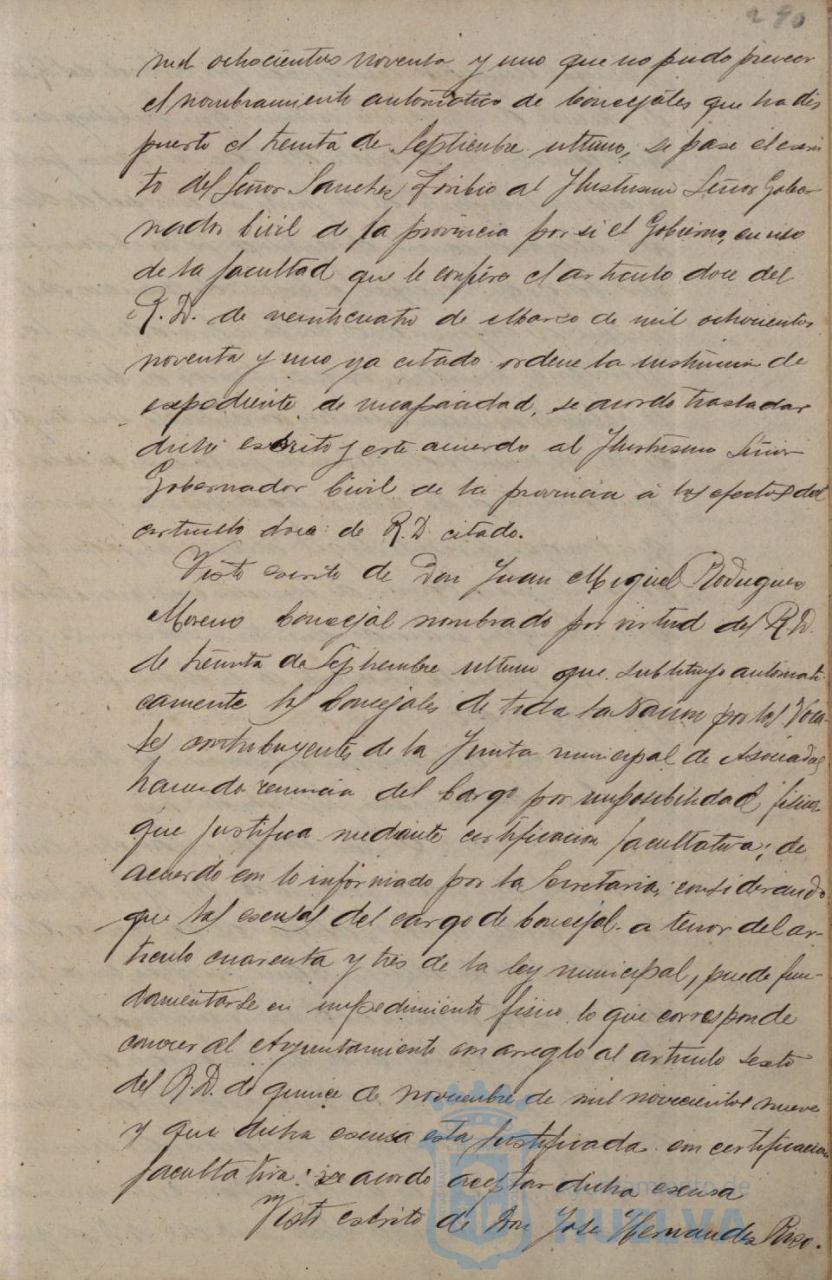 290
mil ochocientos noventa y uno que no pudo preveer
el nombramiento automatico de Concejales que ha dis
puesto el treinta de Septiembre ultimo, se pase el escri
to del Señor Sanchez Toribio al Ilustrisimo Señor Gober
nador Civil de la provincia por si el Gobierno, en uso
de la facultad que le confiere el articulo doce del
R.D. de veinticuatro de Marzo de mil ochocientos
noventa y uno ya citado ordene la instrucion de
expediente de incapacidad, se acordo trasladar
dicho escrito y este acuerdo al Ilustrisimo Señor
Gobernador Civil de la provincia a los efectos del
articulo doce de R.D. citado.
Visto escrito de Don Juan Miguel Rodriguez
Moreno Concejal nombrado por virtud del R.D.
de treinta de Septiembre ultimo que substituyo automati
camente los Concejales de toda la Nacion por los Voca-
les contribuyentes de la Junta municipal de Asociados
haciendo renuncia del Cargo por imposibilidad fisica
que justifica mediante certificacion facultativa; de
acuerdo con lo informado por la Secretaria; considerando
que las escusas del cargo de Concejal a tenor del ar-
ticulo cuarenta y tres de la ley municipal, puede fun-
damentarse en impedimento fisico lo que corresponde
conocer al Ayuntamiento con arreglo al articulo sexto
del R.D. de quince de noviembre de mil novecientos nueve
y que dicha escusa esta justificada con certificacion
facultativa: se acordo aceptar dicha escusa
Visto escrito de Don Jose Hernandez Rozo.
Ayuntamiento de
HUELVA